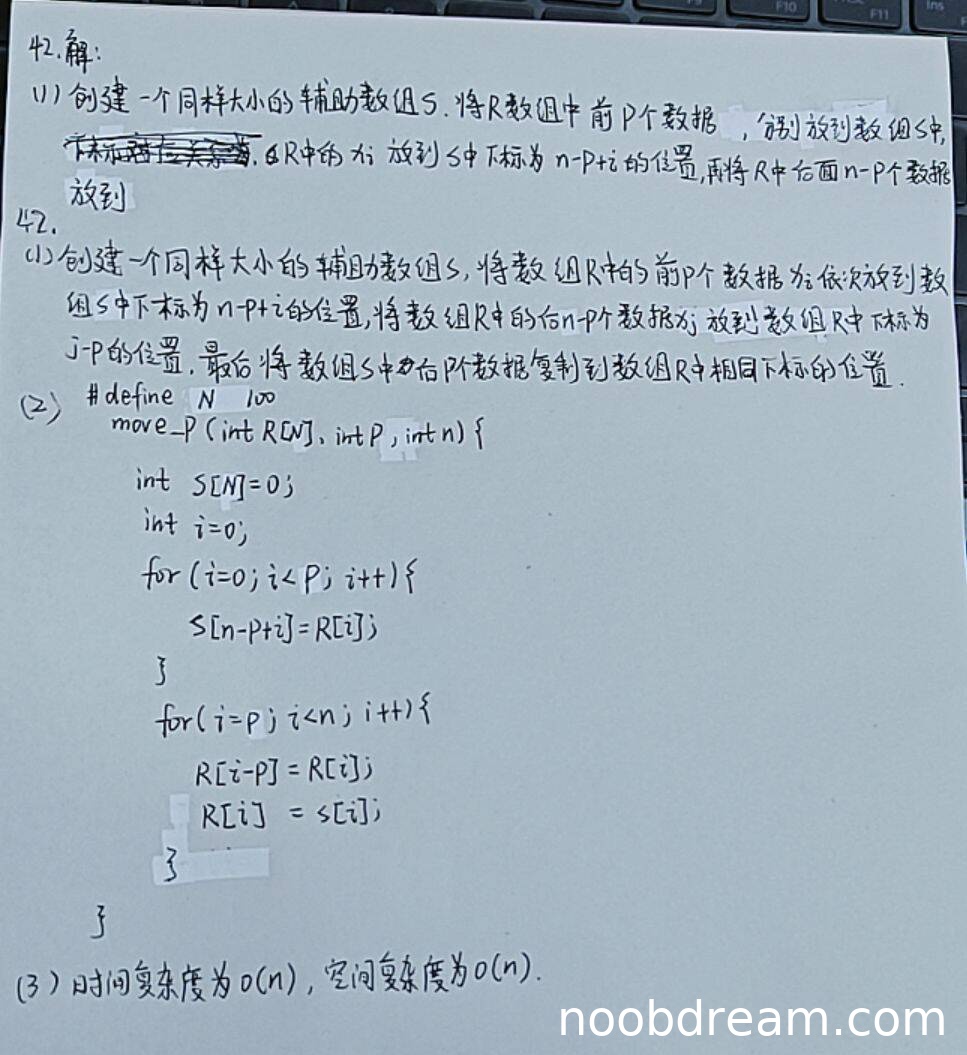 42.解:
(1) 创建一个同样大小的辅助数组S.将R数组中前P个数据,分别放到数组S中,
R中的xi放到S中下标为n-p+i的位置,再将R中后面n-P个数据
放到
42.
(1)创建一个同样大小的辅助数组S,将数组R中的前P个数据xi依次放到数
组S中下标为n-p+i的位置,将数组R中的后n-P个数据xj放到数组R中下标为
j-p的位置.最后将数组S中后P个数据复制到数组R中相同下标的位置.
(2) #define N 100
move_p(int R[N], int P, int n){
int S[N]=0;
int i=0;
for(i=0;i<P;i++){
S[n-p+i]=R[i];
}
for(i=p;i<n;i++){
R[i-p]=R[i];
R[i] = s[i];
}
}
(3)时间复杂度为O(n),空间复杂度为O(n).
noobdream.com
F10
F11
Ins